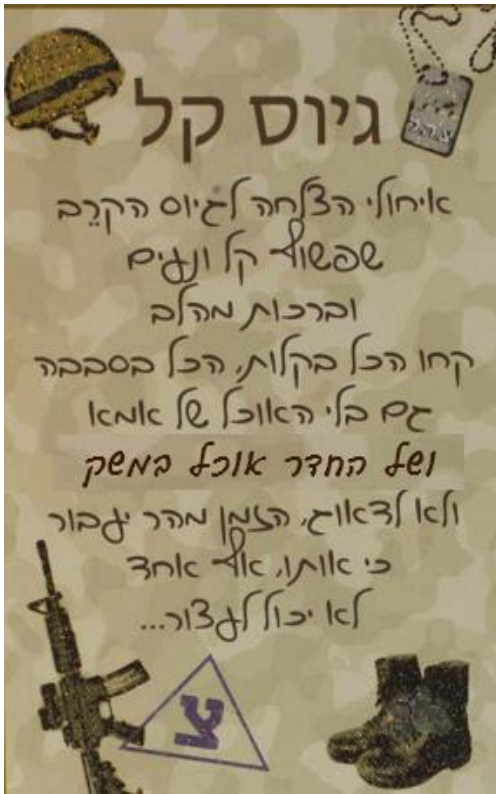 גיוס קל
איחולי הצלחה לגיוס הקרֵב
שפשוף קל ונעים
וברכות מהלב
קחו הכל בקלות, הכל בסבבה
גם בלי האוכל של אמא
ושל החדר אוכל במשק
ולא לדאוג, הזמן מהר יעבור
כי אותו, אף אחד
לא יכול לעצור...